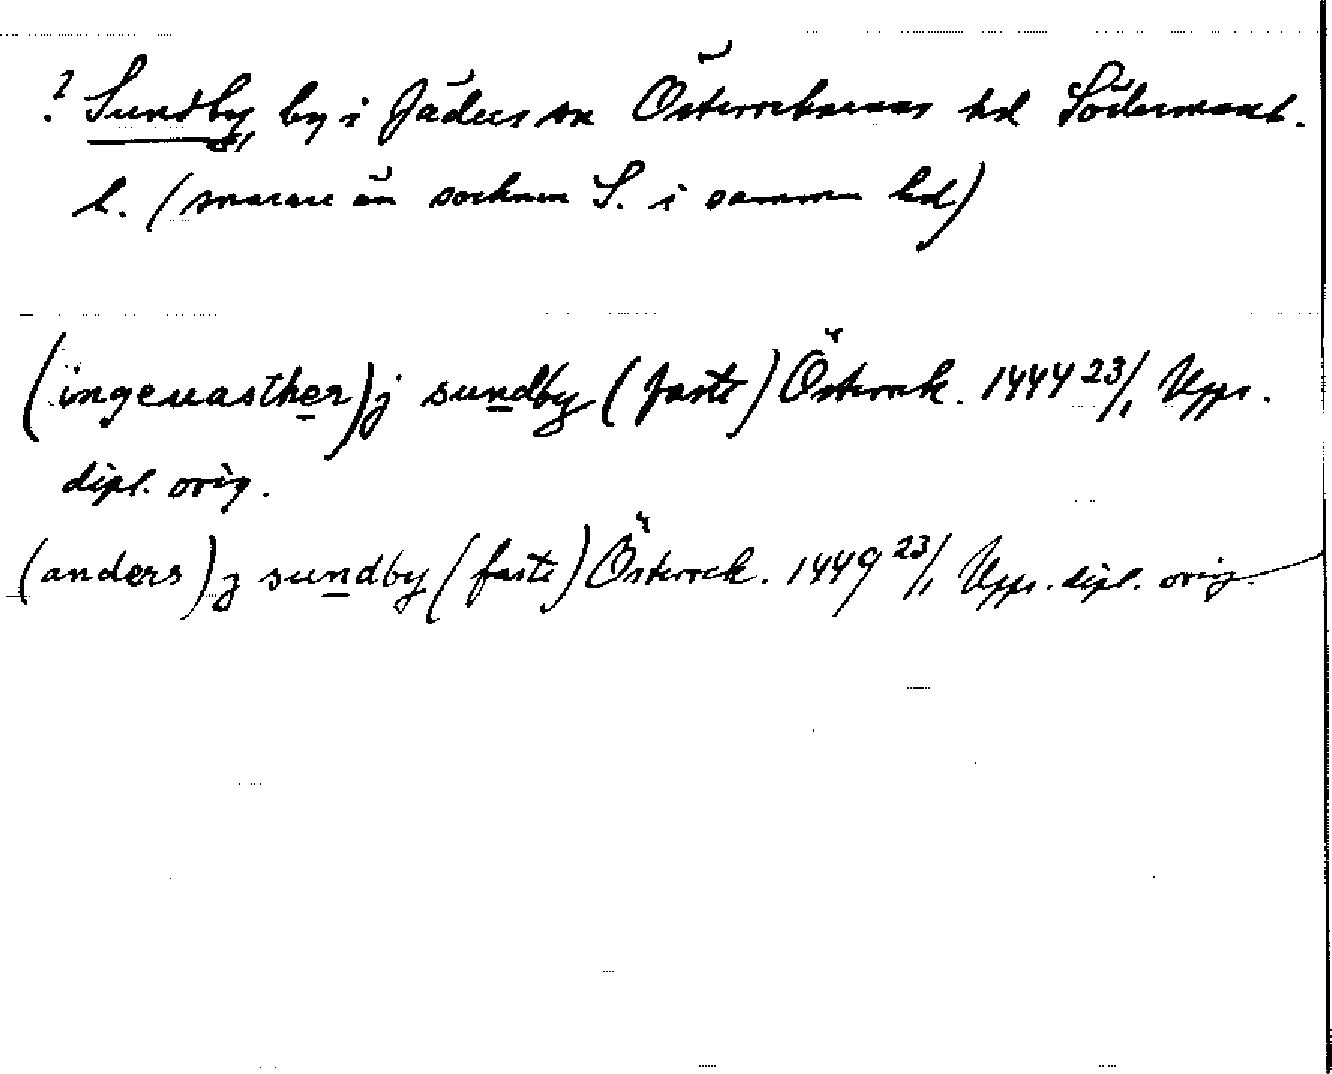 ? Sundby by i Jäders sn Österrekarnes hd Södermanl.
l. (snarare än socknen S. i samma hd)
(ingeuasther) j sundby (faste) Österrek. 1444 23/1 Upps.
dipl. orig.
(anders) j sundby (faste) Österrek. 1449 23/1 Upps. dipl. orig.